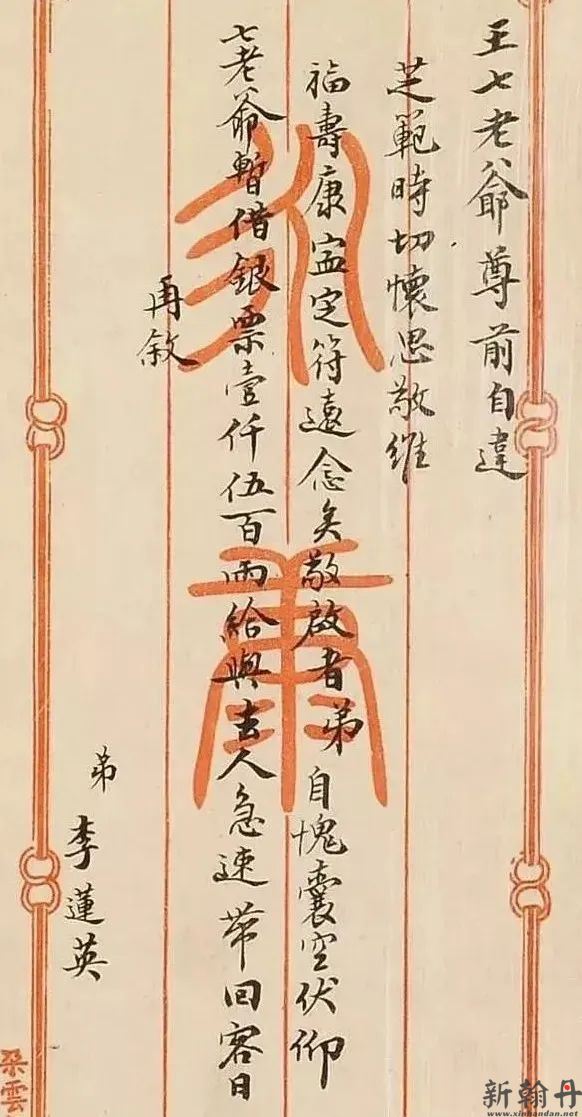 王七老爺尊前自違
芝範時切懷思敬維
福壽康寍定符遠念矣敬啟者弟自愧囊空伏仰
七老爺暫借銀票壹仟伍百兩給與去人急速帶回容日
再敘
弟
李蓮英
朵雲
新翰丹
www.xinhandan.net